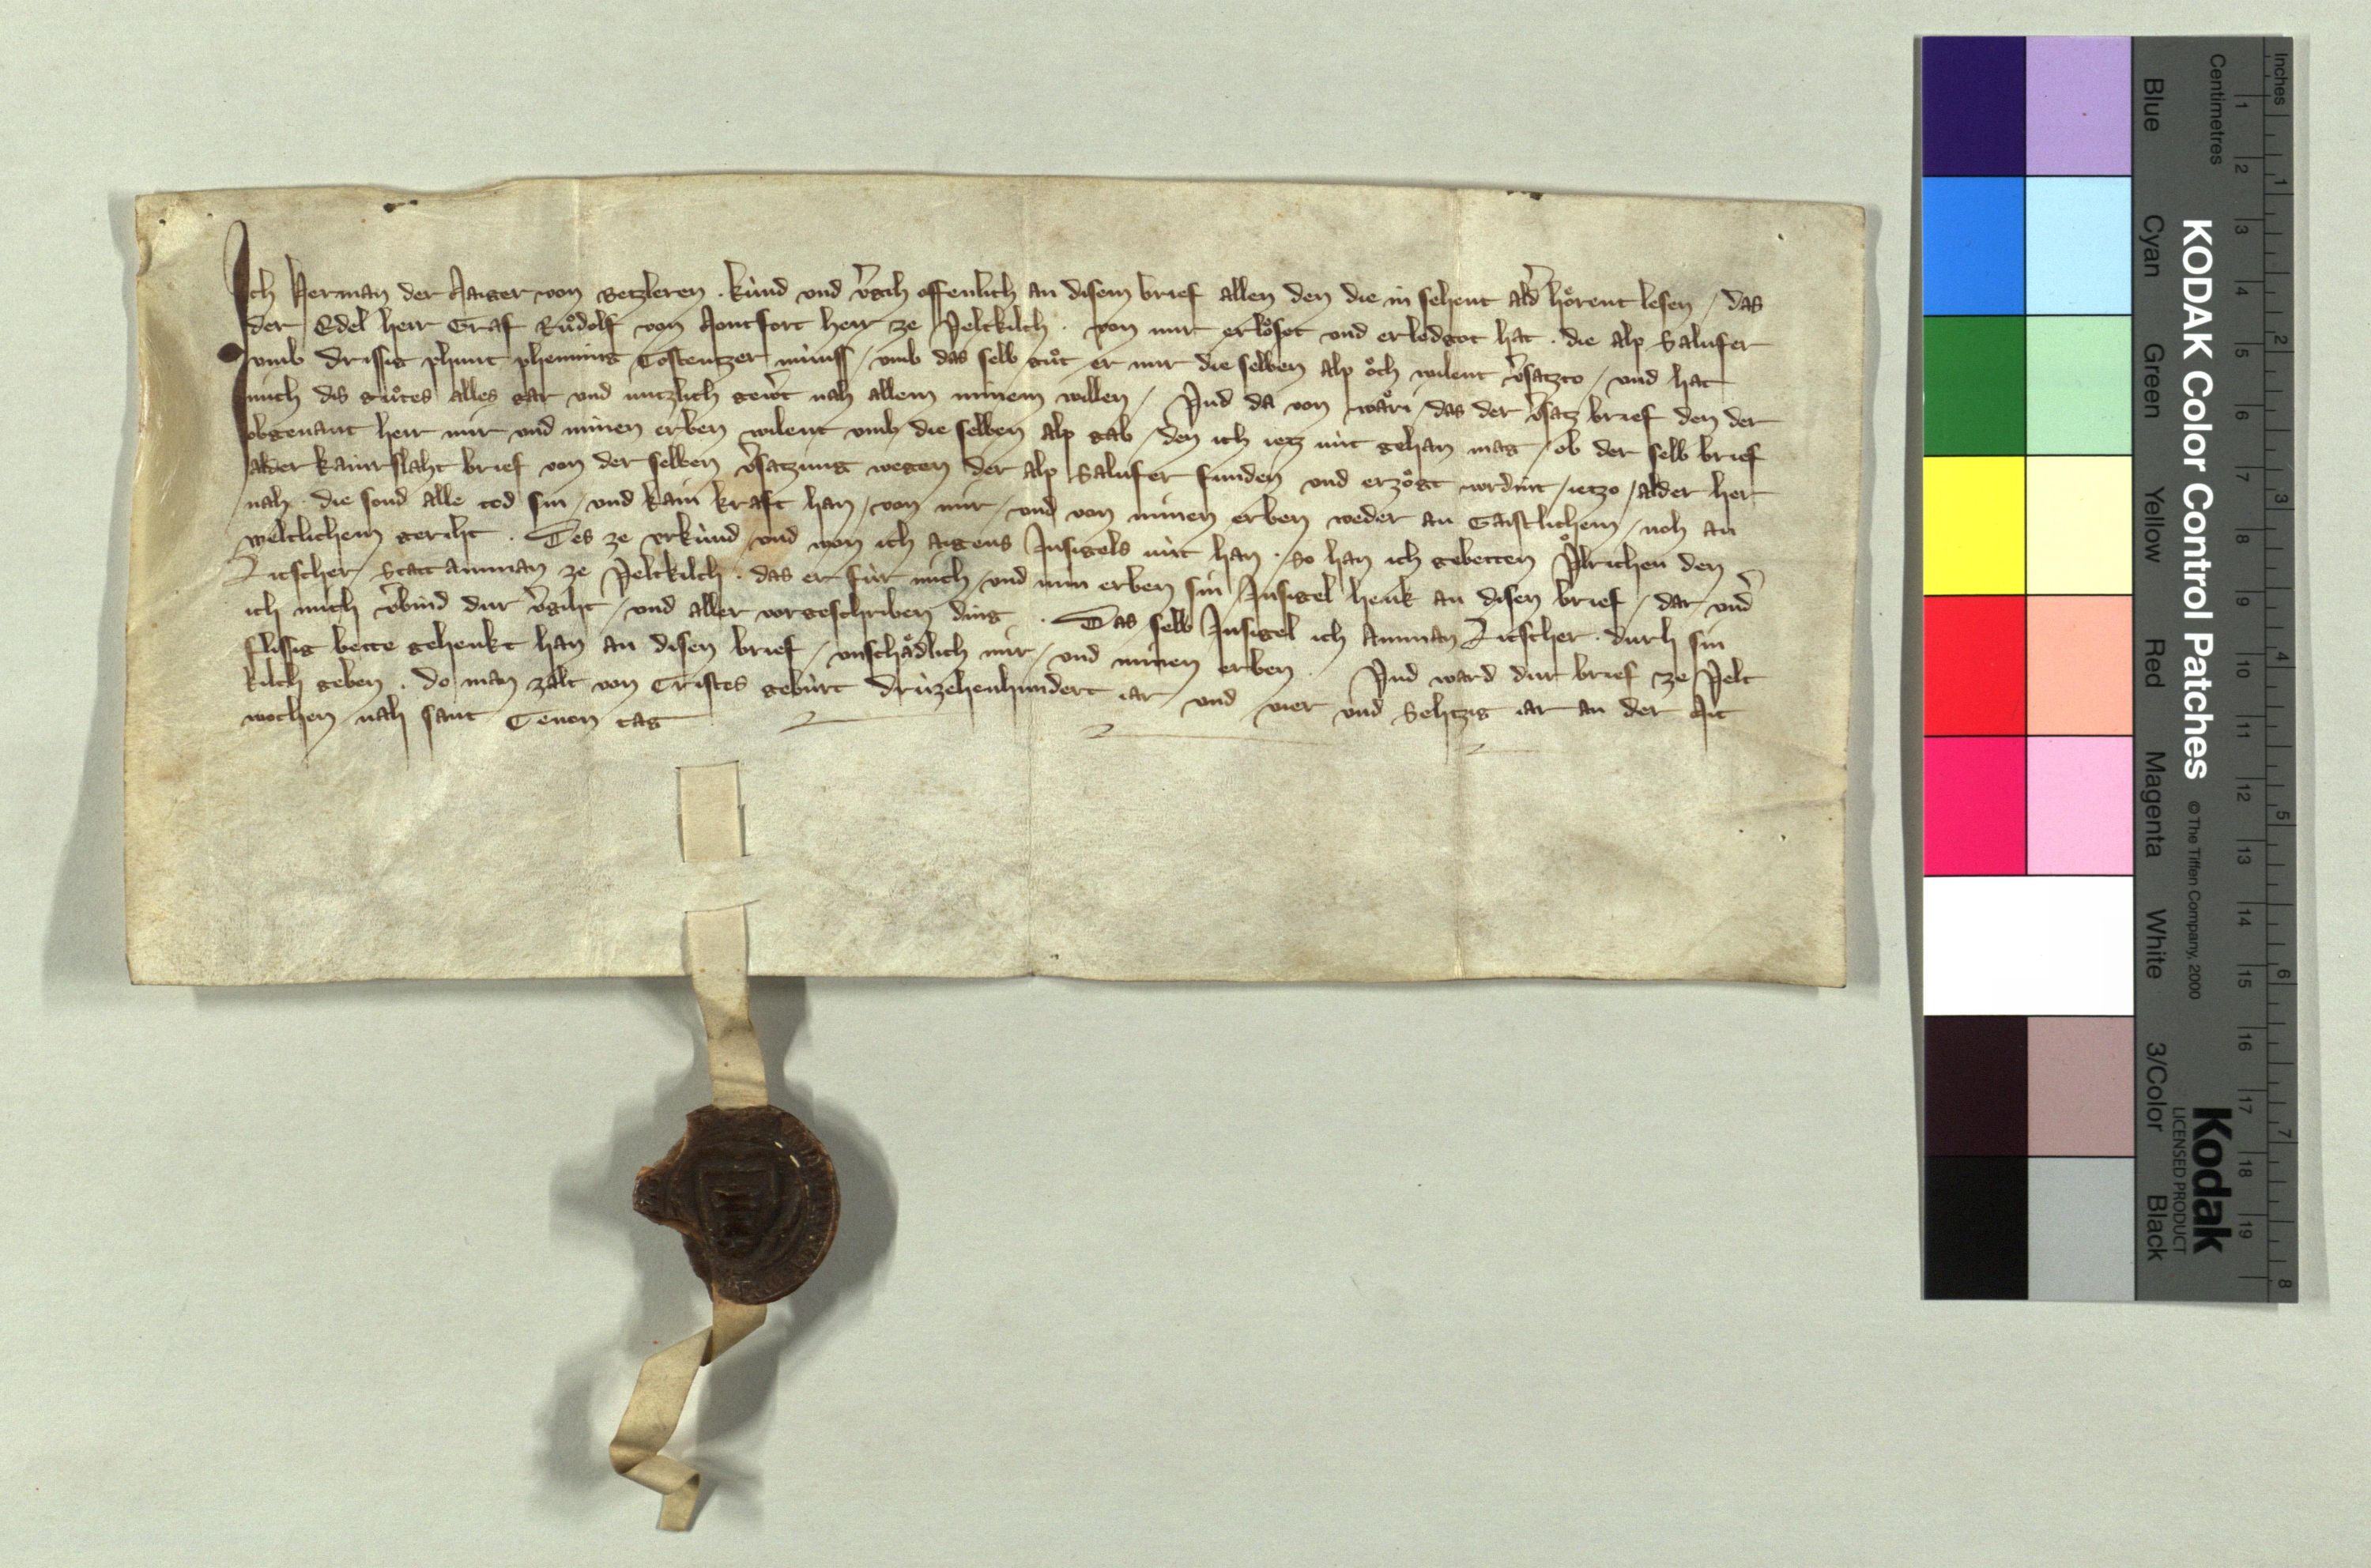 Ich Herman der Maiger von Setzleren . kúnd und v̾gich offenlich an disem brief allen den die in sehent ald̾ hoͤrent lesen / das
der Edel herr Graf Ruͦdolf von Montfort herr ze Veltkilch . von mir erloͤset vnd erledgot hat . die alp Salufer
vmb drissig phunt phenning Costentzer múnss / vmb das selb guͦt er mir die selben alp oͮch wilent v̾satzto / vnd hat
mich dis guͦtes alles gar vnd nutzlich gew̾t nah allem minem willen / Vnd da von waͤri / das der v̾satz brief den der
obgenant herr mir vnd minen erben wilent vmb die selben alp gab / den ich ietz nút gehan mag / ob der selb brief
alder kainrslaht brief von der selben v̾satzung wegen der alp Salufer funden vnd erzoͤgt wrdint / ietzo / alder her
nah . die sond alle tod sin / vnd kain kraft han / von mir / vnd von minen erben weder an Gaistlichem / noh an
weltlichem geriht . Des ze vrkúnd / vnd won ich aigens Insigels nút han . so han ich gebetten Vͦlrichen den
Litscher Stattamman ze Veltkilch . das er fúr mich / vnd min erben sin Insigel henk an disen brief / dar vnd̾
ich mich v̾bind dirr v̾giht / vnd aller vorgeschriben ding . Das selb Insigel ich Amman Litscher . durh sin
flissig bette gehenkt han an disen brief / vnschaͤdlich mir / vnd minen erben . Vnd ward dirr brief ze Velt
kilch geben . do man zalt von Cristes gebúrt drúzehenhundert iar / vnd vier vnd Sehtzig iar an der Mit
wochen nah sant Tenon tag
KODAK Color Control Patches
© The Tiffen Company, 2000
Kodak
LICENSED PRODUCT
Blue Cyan Green Yellow Red Magenta White 3/Color Black
Centimetres
1 2 3 4 5 6 7 8 9 10 11 12 13 14 15 16 17 18 19
Inches
1 2 3 4 5 6 7 8